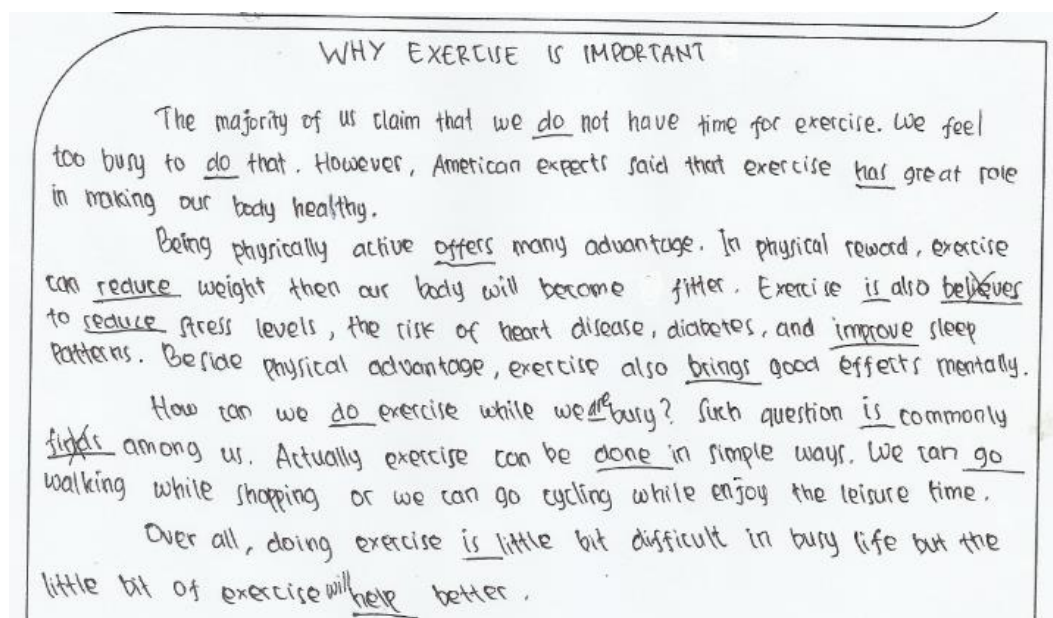 WHY EXERCISE IS IMPORTANT
The majority of us claim that we do not have time for exercise. We feel
too busy to do that. However, American experts said that exercise has great role
in making our body healthy.
Being physically active offers many advantage. In physical reward, exercise
can reduce weight then our body will become fitter. Exercise is also believes
to reduce stress levels, the risk of heart disease, diabetes, and improve sleep
Patterns. Beside physical advantage, exercise also brings good effects mentally.
How can we do exercise while we are busy? Such question is commonly
finds among us. Actually exercise can be done in simple ways. We can go
walking while shopping or we can go cycling while enjoy the leisure time.
Over all, doing exercise is little bit difficult in busy life but the
little bit of exercise will help better.